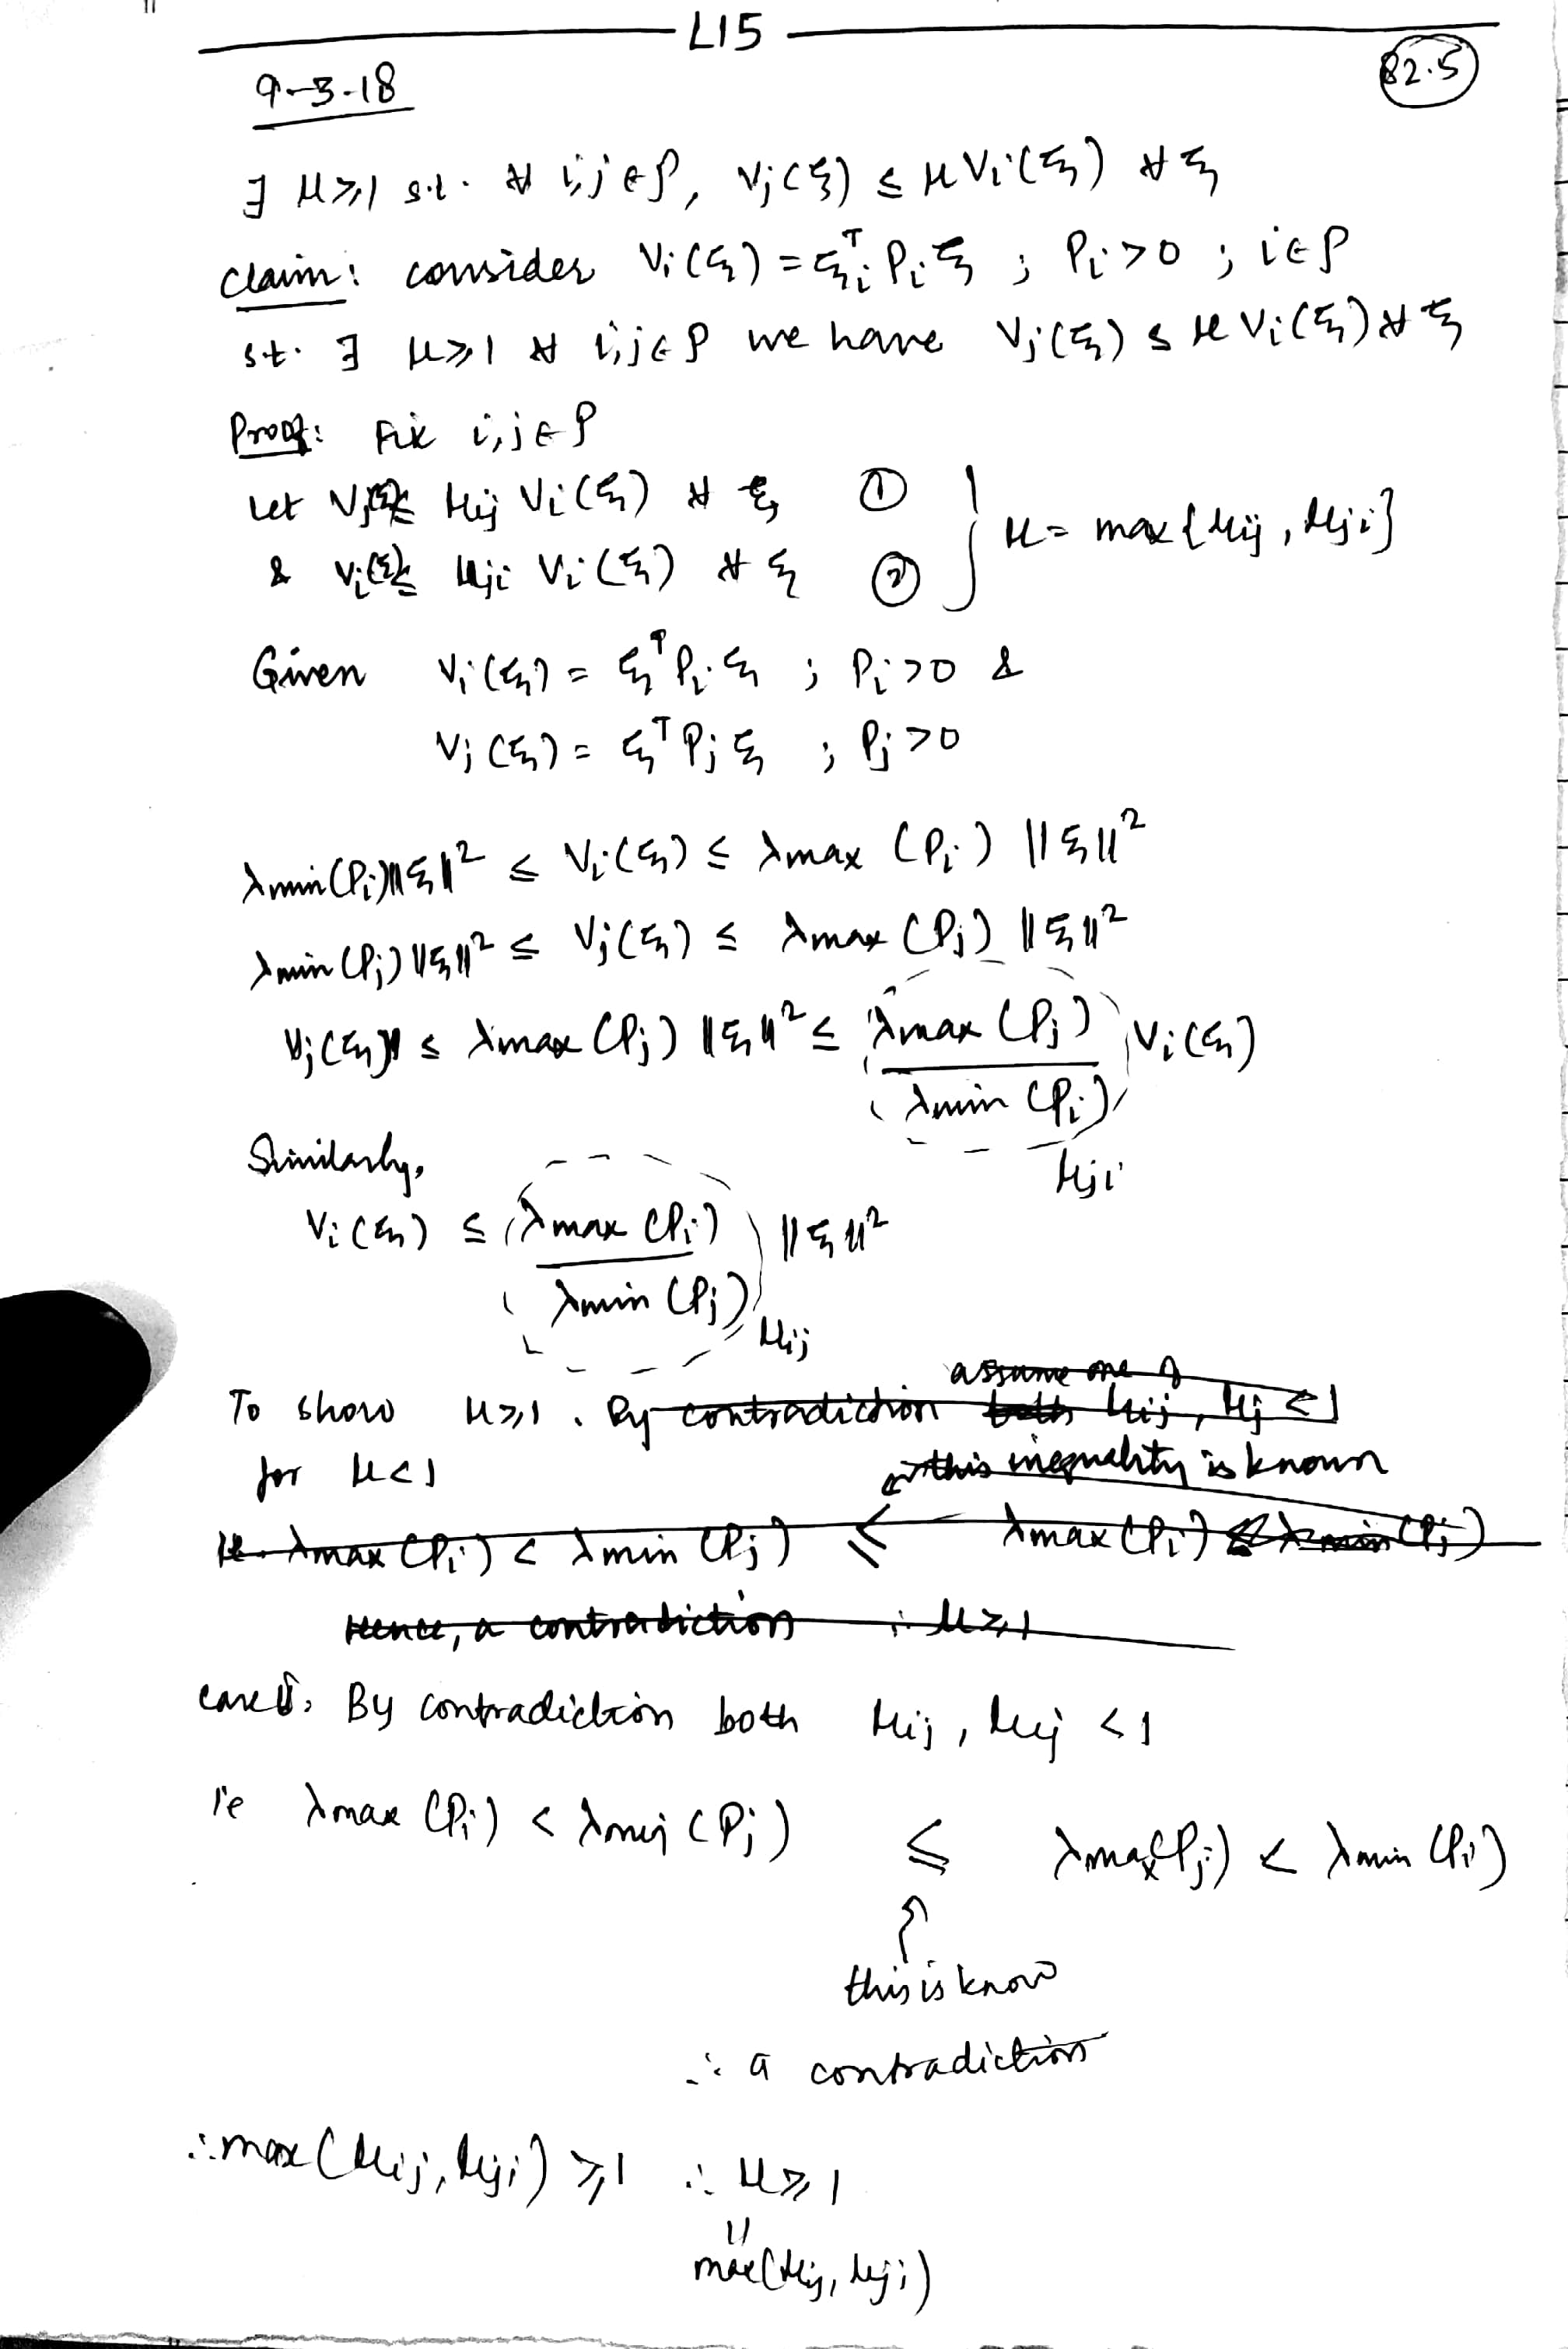 L15
9-3-18
82.5
∃ μ≥1 s.t. ∀ i,j ∈ P, Vj(ξ) ≤ μ Vi(ξ) ∀ ξ
claim: consider Vi(ξ) = ξᵢᵀ Pi ξ ; Pi > 0 ; i ∈ P
s.t. ∃ μ≥1 ∀ i,j ∈ P we have Vj(ξ) ≤ μ Vi(ξ) ∀ ξ
Proof: Fix i,j ∈ P
Let Vj(ξ) ≤ μij Vi(ξ) ∀ ξ ①
& Vi(ξ) ≤ μji Vi(ξ) ∀ ξ ②
μ = max{μij, μji}
Given Vi(ξ) = ξᵀ Pi ξ ; Pi > 0 &
Vj(ξ) = ξᵀ Pj ξ ; Pj > 0
λmin(Pi)||ξ||² ≤ Vi(ξ) ≤ λmax(Pi) ||ξ||²
λmin(Pj)||ξ||² ≤ Vj(ξ) ≤ λmax(Pj) ||ξ||²
Vj(ξ) ≤ λmax(Pj) ||ξ||² ≤ λmax(Pj) Vi(ξ)
λmin(Pi)
μji
Similarly,
Vi(ξ) ≤ λmax(Pi) ||ξ||²
λmin(Pj)
μij
assume one of
To show μ≥1. By contradiction both μij, μj < 1
for μ<1
this inequality is known
λmax(Pi) < λmin(Pj) ≤ λmax(Pi) < λmin(Pj)
Hence, a contradiction ∴ μ≥1
By contradiction both μij, μij < 1
ie λmax(Pi) < λmin(Pj) ≤ λmax(Pj) < λmin(Pi)
this is know
∴ a contradiction
∴ max(μij, μji) ≥ 1 ∴ μ≥1
||
max(μij, μji)